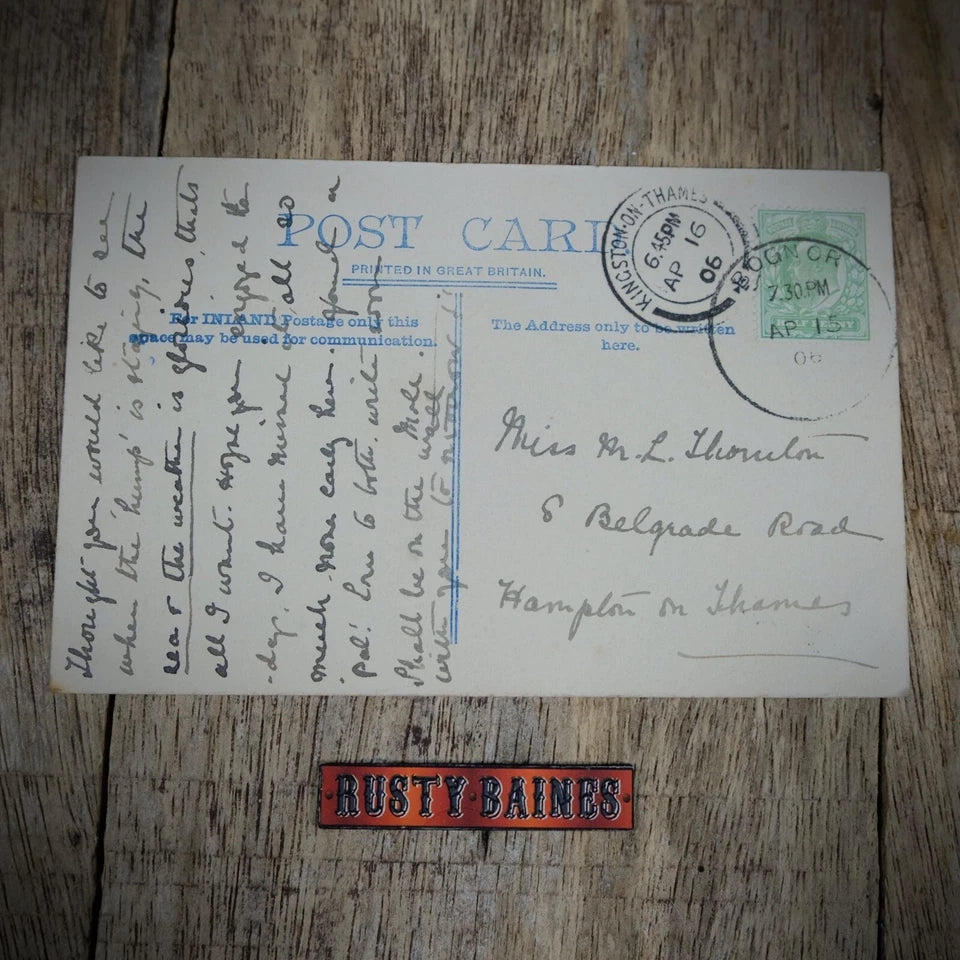 POST CARD
PRINTED IN GREAT BRITAIN.
For INLAND Postage only this
space may be used for communication.
The Address only to be written
here.
KINGSTON-ON-THAMES
6.45PM
AP 16
06
BOGNOR
7.30.PM
AP 15
06
Miss M. L. Thornton
6 Belgrade Road
Hampton on Thames
Thought you would like to see
where the 'hump' is staying, the
sea & the weather is glorious, thats
all I want. Hope you enjoyed the
day. I have missed it all so
much. More early here. a
pal! Love to both. write soon
Shall be on the wall.
with you tomorrow
RUSTY·BAINES